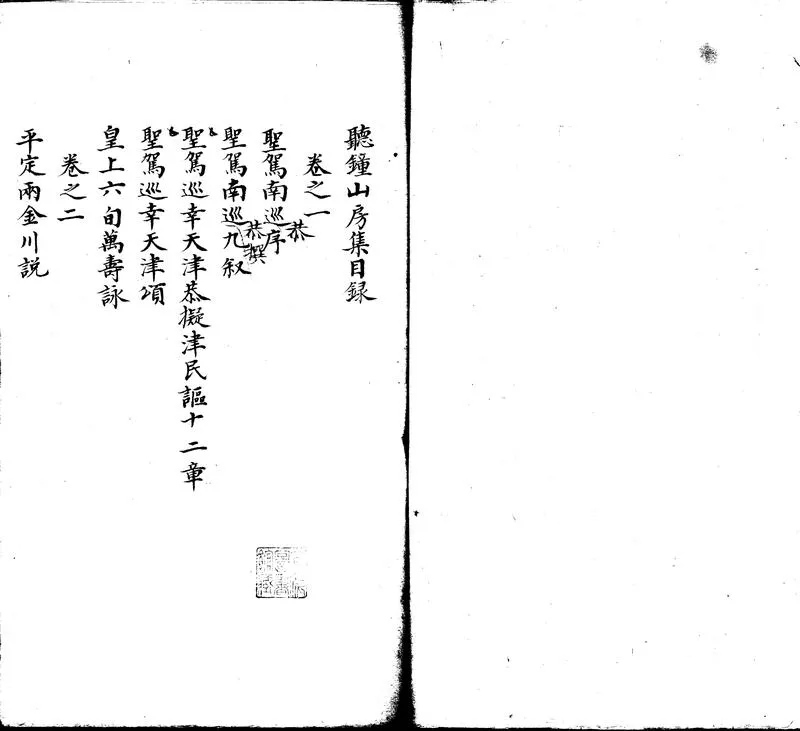 聽鐘山房集目録
卷之一
聖駕南巡恭序
聖駕南巡恭撰九叙
聖駕巡幸天津恭擬津民謳十二章
聖駕巡幸天津頌
皇上六旬萬壽詠
卷之二
平定兩金川説